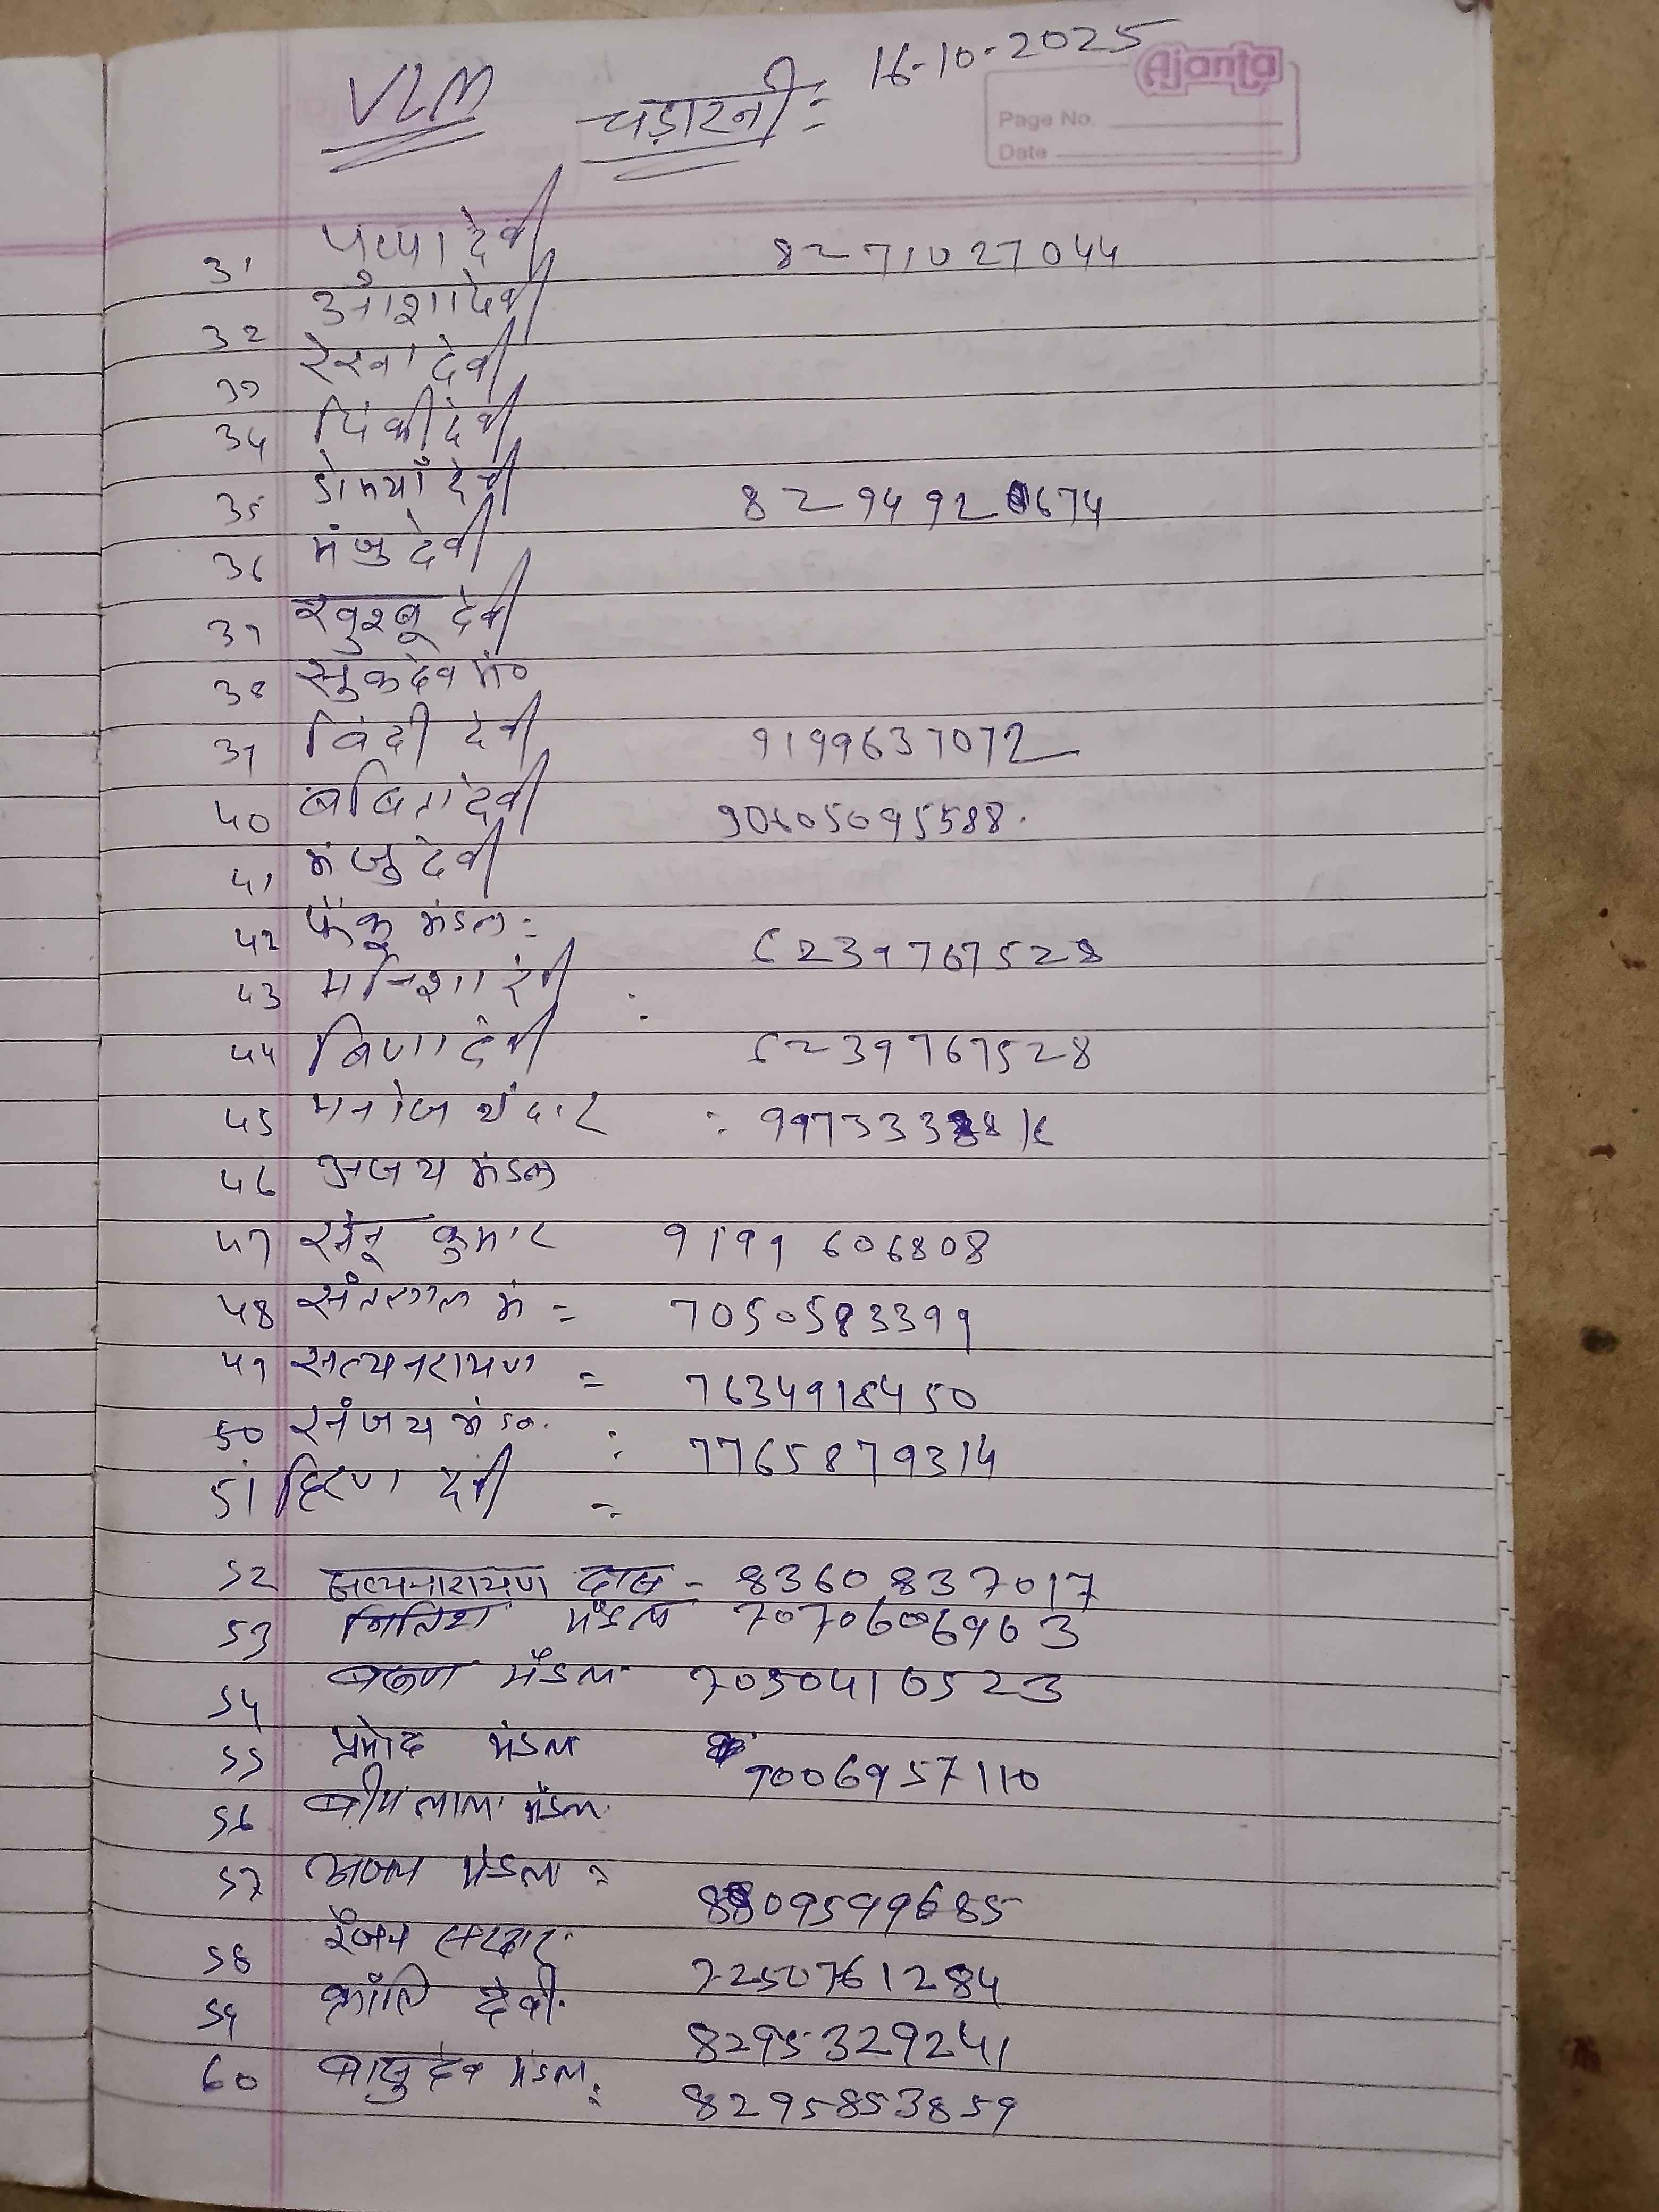 VLM चड़ारनी = 16-10-2025
Ajanta
Page No.
Date
31 पुष्पा देवी 8271027044
32 आशा देवी
33 रेखा देवी
34 पिंकी देवी
35 देवी 8294920674
36 मंजु देवी
37 खुश्बू देवी
38 सुकदेव मं०
39 विंदी देवी 9199637072
40 बबिता देवी 90605095588.
41 मंजु देवी
42 फेंकू मंडल = 6239767528
43 मनिशा देवी :
44 बिणा देवी 6239767528
45 मनोज :
46 अजय मंडल
47 कुमार 9199606808
48 संतलाल मं = 7050583399
49 सत्यनरायण = 7634918450
50 संजय मंडल : 7765879314
51 हिरण देवी =
52 सत्यनारायण दास - 8360837017
53 नितिश मंडल 7070606963
54 बरूण मंडल 7050410523
55 प्रमोद मंडल 9006957110
56 मंडल
57 अजय मंडल = 8809599685
58 रंजन सरदार 7250761284
59 क्रांति देवी. 8295329241
60 बासुदेव मंडल : 8295853859